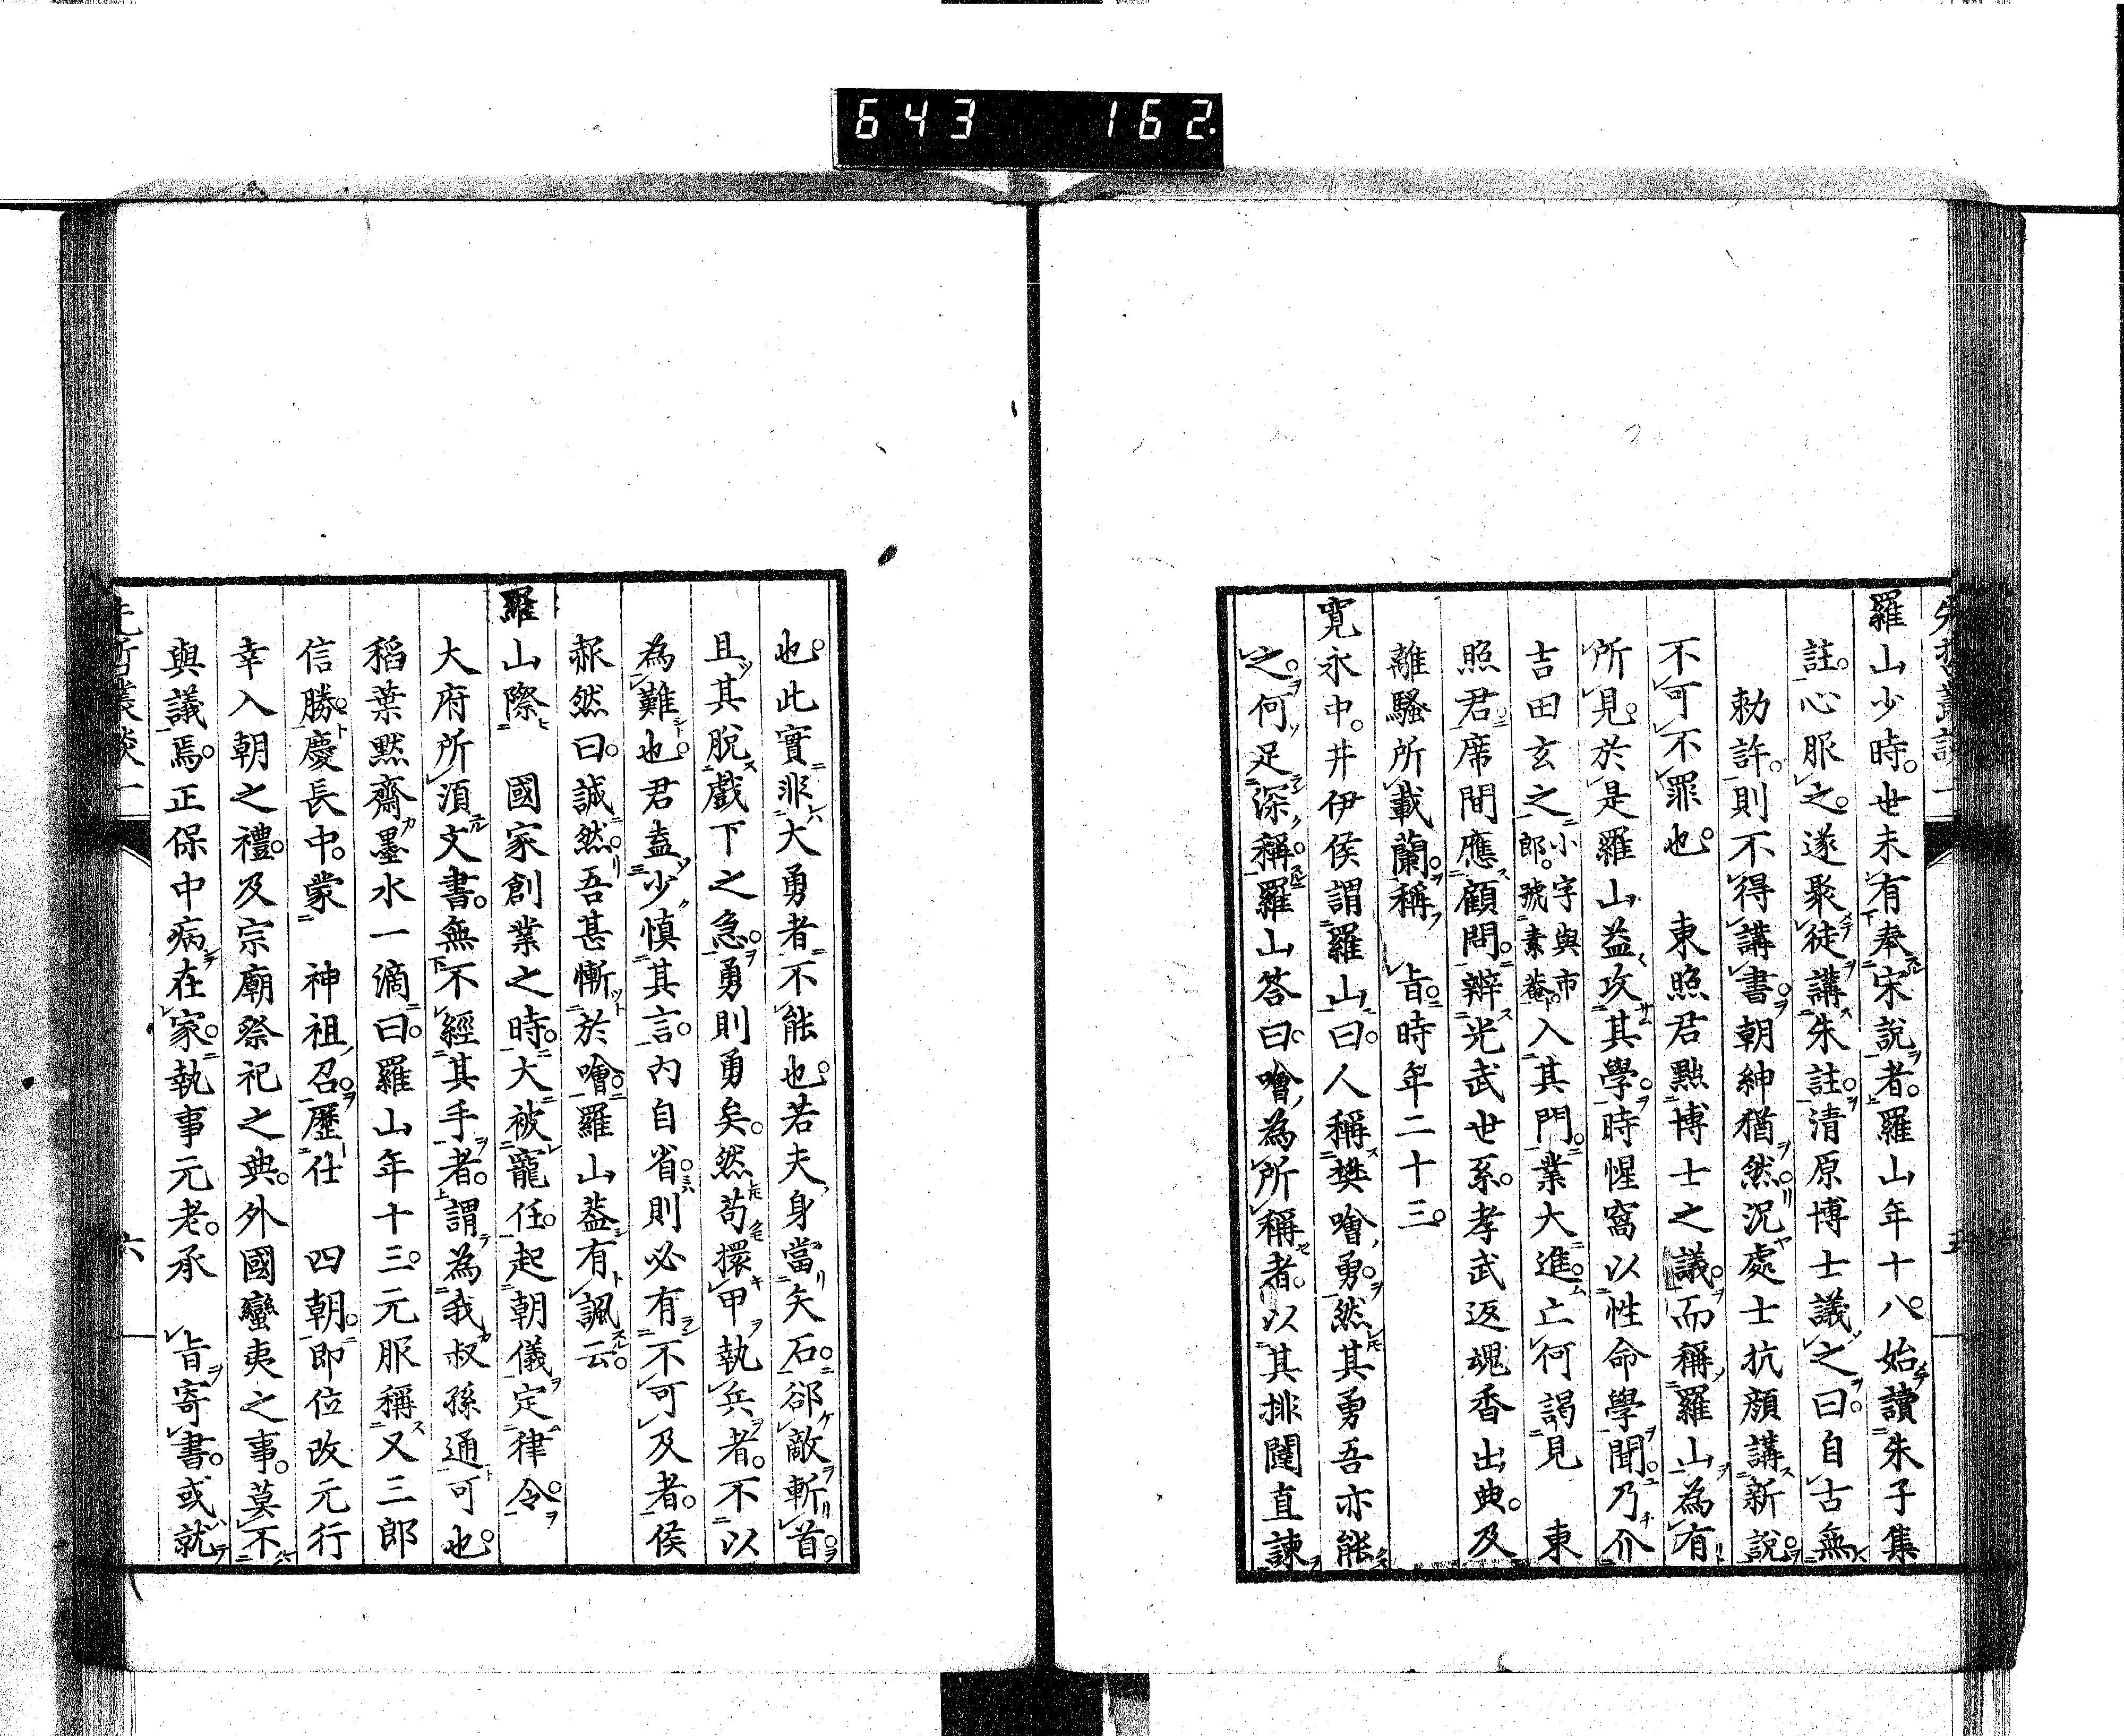 643 162.
羅山少時。世未有奉宋說者。羅山年十八。始讀朱子集
註。心服之。遂聚徒講朱註。清原博士議之曰。自古無
勅許。則不得講書。朝紳猶然。況處士抗顏講新說。
不可不罪也。 東照君黜博士之議。而稱羅山為有
所見。於是羅山益攻其學。時惺窩以性命學聞。乃介
吉田玄之小字與市郎。號素菴。入其門。業大進。亡何謁見 東
照君。席間應顧問。辨光武世系。孝武返魂香出典。及
離騷所載蘭。稱 旨。時年二十三。
寬永中。井伊侯謂羅山曰。人稱樊噲勇。然其勇吾亦能
之。何足深稱。羅山答曰。噲為所稱者。以其排闥直諫
也。此實非大勇者不能也。若夫身當矢石。郤敵斬首。
且其脫戲下之急。勇則勇矣。然苟擐甲執兵者。不以
為難也。君盍少慎其言。內自省。則必有不可及者。侯
赧然曰。誠然。吾甚慚於噲。羅山蓋有諷云。
羅山際 國家創業之時。大被寵任。起朝儀定律令。
大府所須文書。無不經其手者。謂為我叔孫通可也。
稻葉默齋墨水一滴曰。羅山年十三。元服稱又三郎
信勝。慶長中。蒙 神祖召。歷仕 四朝。即位改元行
幸入朝之禮。及宗廟祭祀之典。外國蠻夷之事。莫不
與議焉。正保中病在家。執事元老。承 旨寄書。或就
先哲叢談一
六